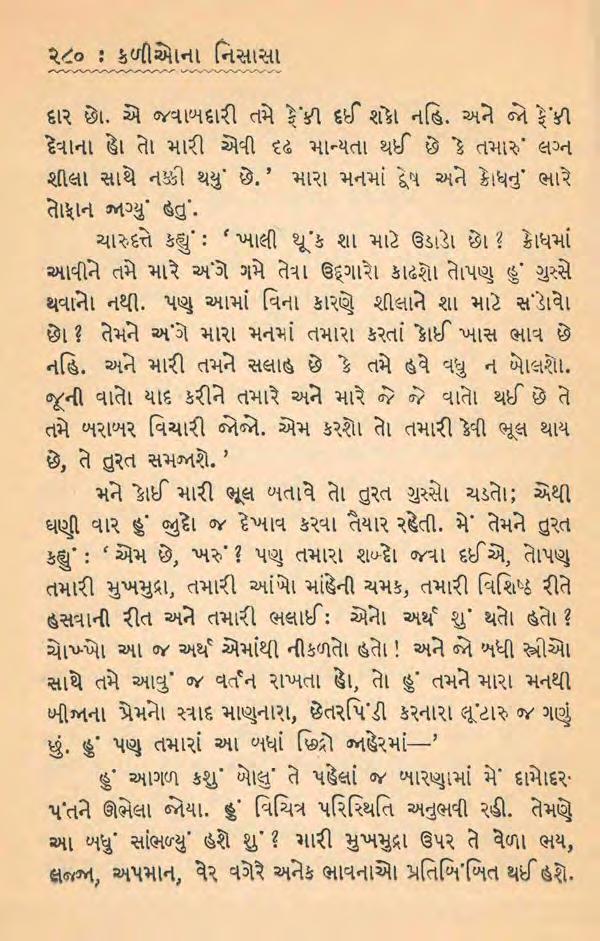 ૨૮૦ : કળીઓના નિસાસા
દાર છો. એ જવાબદારી તમે ફેંકી દઈ શકો નહિ. અને જો ફેંકી
દેવાના હો તો મારી એવી દૃઢ માન્યતા થઈ છે કે તમારું લગ્ન
શીલા સાથે નક્કી થયું છે.’ મારા મનમાં દ્વેષ અને ક્રોધનું ભારે
તોફાન જાગ્યું હતું.
ચારુદત્તે કહ્યું : ‘ખાલી થૂંક શા માટે ઉડાડો છો ? ક્રોધમાં
આવીને તમે મારે અંગે ગમે તેવા ઉદ્દગારો કાઢશો તોપણ હું ગુસ્સે
થવાનો નથી. પણ આમાં વિના કારણે શીલાને શા માટે સંડોવો
છો ? તેમને અંગે મારા મનમાં તમારા કરતાં કોઈ ખાસ ભાવ છે
નહિ. અને મારી તમને સલાહ છે કે તમે હવે વધુ ન બોલશો.
જૂની વાતો યાદ કરીને તમારે અને મારે જે જે વાતો થઈ છે તે
તમે બરાબર વિચારી જોજો. એમ કરશો તો તમારી કેવી ભૂલ થાય
છે, તે તુરત સમજાશે.’
મને કોઈ મારી ભૂલ બતાવે તો તુરત ગુસ્સો ચડતો; એથી
ઘણી વાર હું જુદો જ દેખાવ કરવા તૈયાર રહેતી. મેં તેમને તુરત
કહ્યું : ‘એમ છે, ખરું ? પણ તમારા શબ્દો જવા દઈએ, તોપણ
તમારી મુખમુદ્રા, તમારી આંખો માંહેની ચમક, તમારી વિશિષ્ઠ રીતે
હસવાની રીત અને તમારી ભલાઈ : એનો અર્થ શું થતો હતો ?
ચોખ્ખો આ જ અર્થ એમાંથી નીકળતો હતો ! અને જો બધી સ્ત્રીઓ
સાથે તમે આવું જ વર્તન રાખતા હો, તો હું તમને મારા મનથી
બીજાના પ્રેમનો સ્વાદ માણનારા, છેતરપિંડી કરનારા લૂંટારુ જ ગણું
છું. હું પણ તમારાં આ બધાં છિદ્રો જાહેરમાં—’
હું આગળ કશું બોલું તે પહેલાં જ બારણામાં મેં દામોદર-
પંતને ઊભેલા જોયા. હું વિચિત્ર પરિસ્થિતિ અનુભવી રહી. તેમણે
આ બધું સાંભળ્યું હશે શું ? મારી મુખમુદ્રા ઉપર તે વેળા ભય,
લજ્જા, અપમાન, વેર વગેરે અનેક ભાવનાઓ પ્રતિબિંબિત થઈ હશે.